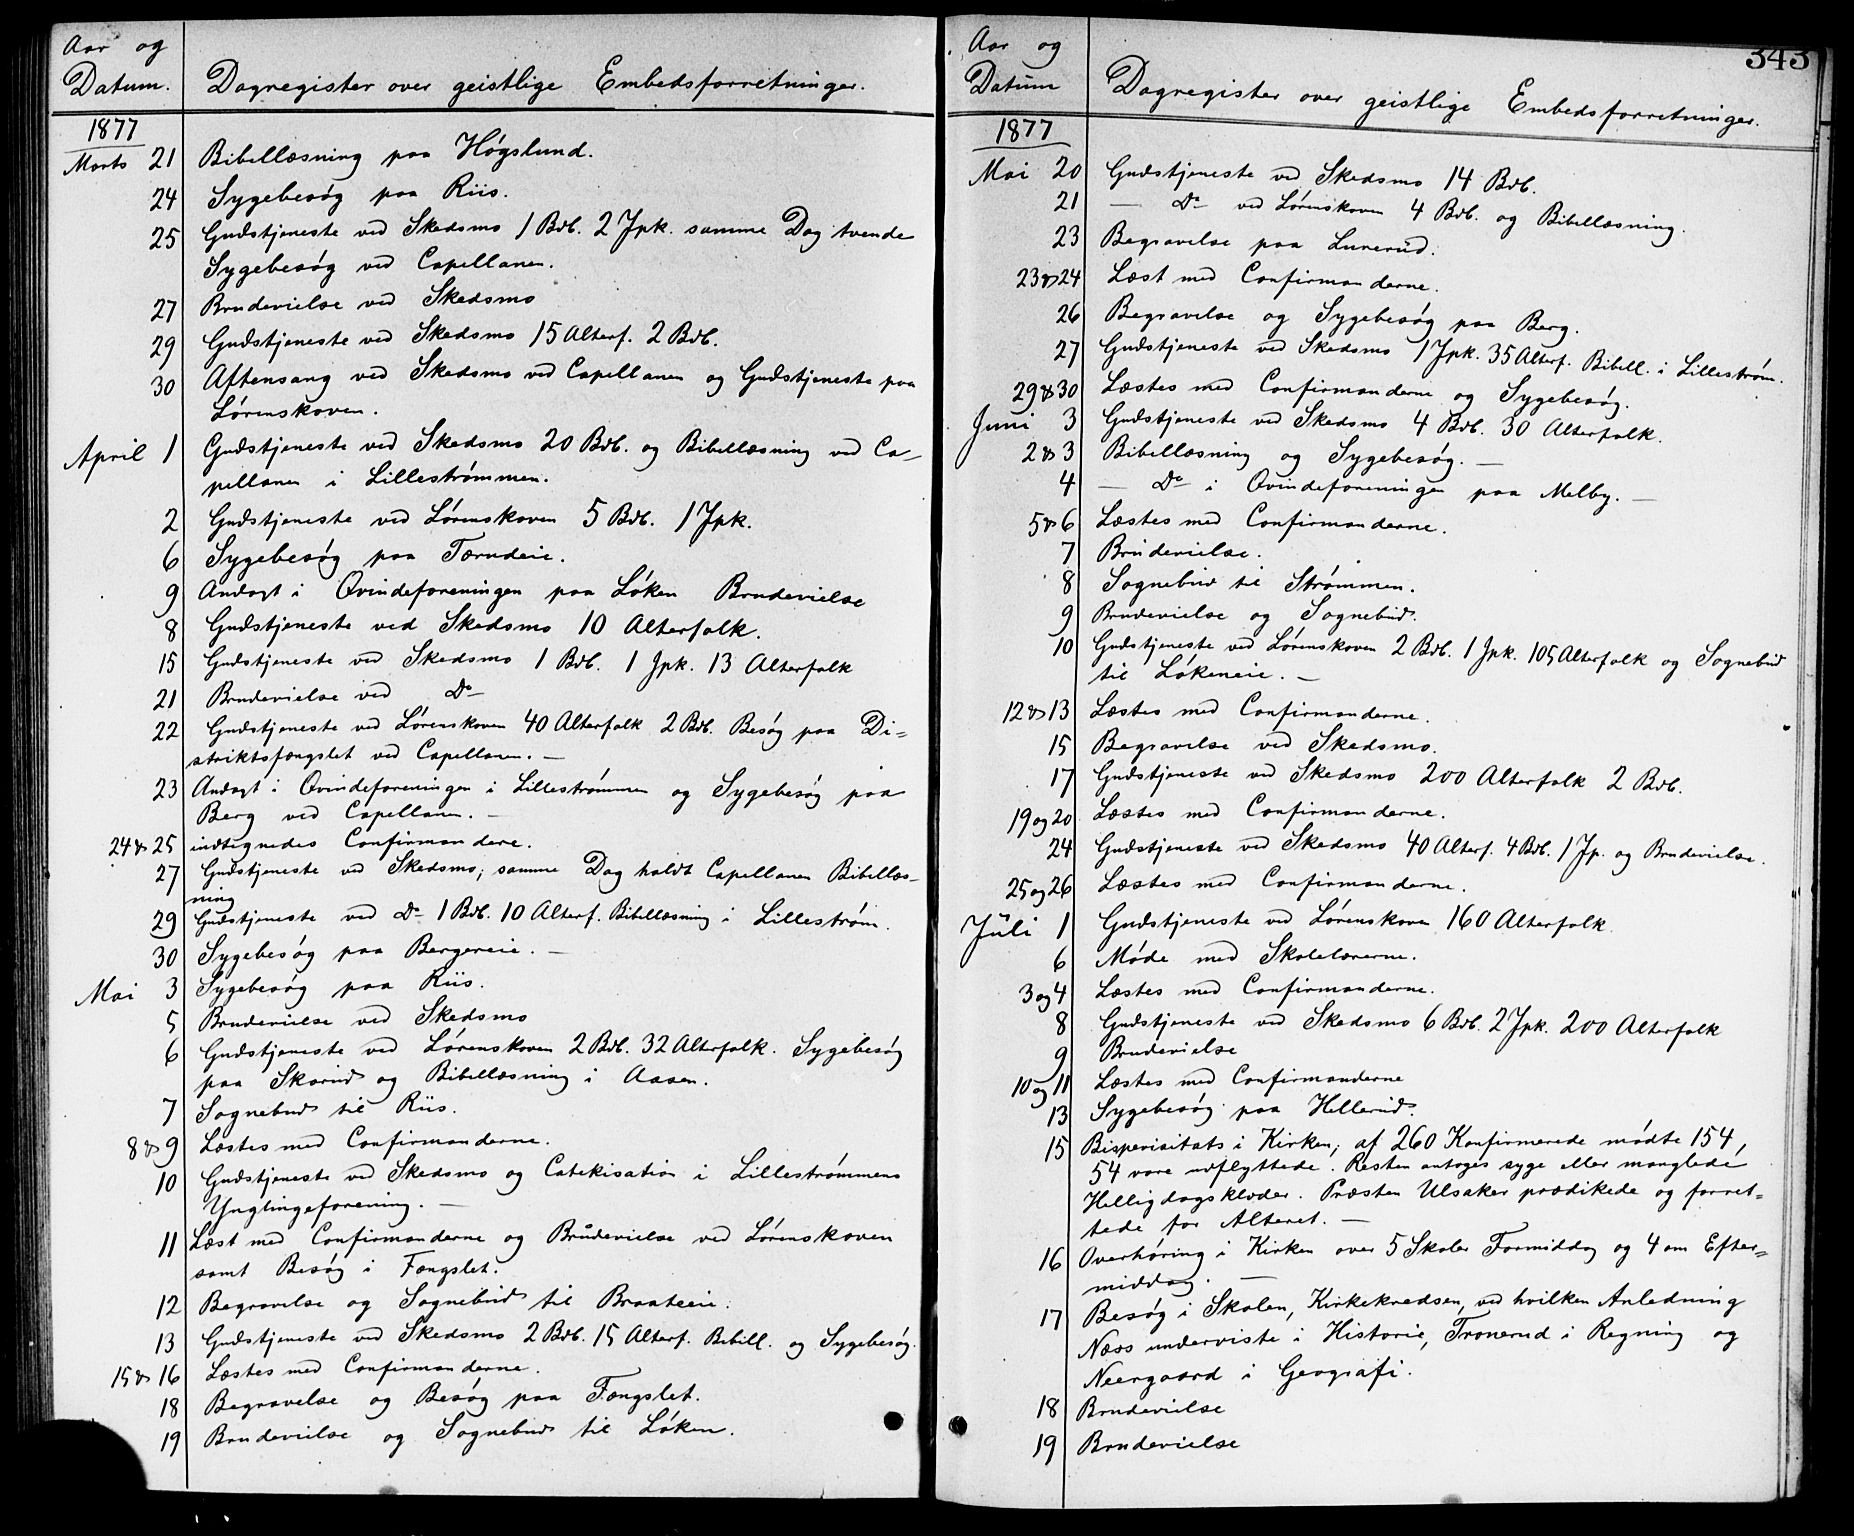 Aar og
Datum. Dagregister over geistlige Embedsforretninger.
1877
Marts 21 Bibellæsning paa Högslund.
24 Sygebesøg paa Riis.
25 Gudstjeneste ved Skedsmo 1 Bdb. 2 Jpk. samme Dag tvende
Sygebesøg ved Capellanen.
27 Brudevielse ved Skedsmo
29 Gudstjeneste ved Skedsmo 15 Alterf. 2 Bdb.
30 Aftensang ved Skedsmo ved Capellanen og Gudstjeneste paa
Lørenskoven.
April 1 Gudstjeneste ved Skedsmo 20 Bdb. og Bibellæsning ved Ca-
pellanen i Lillestrømmen.
2 Gudstjeneste ved Lørenskoven 5 Bdb. 1 Jpk.
6 Sygebesøg paa Tærudeie.
9 Andagt i Qvindeforeningen paa Löken Brudevielse
8 Gudstjeneste ved Skedsmo 10 Alterfolk.
15 Gudstjeneste ved Skedsmo 1 Bdb. 1 Jpk. 13 Alterfolk
21 Brudevielse ved Do
22 Gudstjeneste ved Lørenskoven 40 Alterfolk 2 Bdb. Besøg paa Di-
striktsfængslet ved Capellanen. —
23 Andagt i Qvindeforeningen i Lillestrømmen og Sygebesøg paa
Berg ved Capellanen. —
24 & 25 indtegnedes Confirmandere.
27 Gudstjeneste ved Skedsmo, samme Dag holdt Capellanen Bibellæs-
ning
29 Gudstjeneste ved Do 1 Bdb. 10 Alterf. Bibellæsning i Lillestrøm.
30 Sygebesøg paa Bergereie. —
Mai 3 Sygebesøg paa Riis.
5 Brudevielse ved Skedsmo
6 Gudstjeneste ved Lørenskoven 2 Bdb. 32 Alterfolk. Sygebesøg
paa Skarud og Bibellæsning i Aasen.
7 Sognebud til Riis.
8 & 9 Læstes med Confirmanderne.
10 Gudstjeneste ved Skedsmo og Catekisation i Lillestrømmens
Ynglingeforening. —
11 Læst med Confirmanderne og Brudevielse ved Lørenskoven
samt Besøg i Fængslet.
12 Begravelse og Sognebud til Braateeie.
13 Gudstjeneste ved Skedsmo 2 Bdb. 15 Alterf. Bibell. og Sygebesøg.
15 & 16 Læstes med Confirmanderne.
18 Begravelse og Besøg paa Fængslet.
19 Brudevielse og Sognebud til Løken.
343
Aar og
Datum Dagregister over geistlige Embedsforretninger.
1877
Mai 20 Gudstjeneste ved Skedsmo 14 Bdb.
21 — Do ved Lørenskoven 4 Bdb. og Bibellæsning.
23 Begravelse paa Lunerud.
23 & 24 Læst med Confirmanderne.
26 Begravelse og Sygebesøg paa Berg.
27 Gudstjeneste ved Skedsmo 1 Jpk. 35 Alterf. Bibell. i Lillestrøm.
29 & 30 Læstes med Confirmanderne og Sygebesøg.
Juni 3 Gudstjeneste ved Skedsmo 4 Bdb. 30 Alterfolk.
2 & 3 Bibellæsning og Sygebesøg. —
4 — Do i Qvindeforeningen paa Melby. —
5 & 6 Læstes med Confirmanderne.
7 Brudevielse.
8 Sognebud til Strømmen.
9 Brudevielse og Sognebud.
10 Gudstjeneste ved Lørenskoven 2 Bdb. 1 Jpk. 105 Alterfolk og Sognebud
til Løkeneie. —
12 & 13 Læstes med Confirmanderne.
15 Begravelse ved Skedsmo.
17 Gudstjeneste ved Skedsmo 200 Alterfolk 2 Bdb.
19 og 20 Læstes med Confirmanderne.
24 Gudstjeneste ved Skedsmo 40 Alterf. 4 Bdb. 1 Jp. og Brudevielse.
25 og 26 Læstes med Confirmanderne.
Juli 1 Gudstjeneste ved Lørenskoven 160 Alterfolk
6 Møde med Skolelærerne.
3 og 4 Læstes med Confirmanderne.
8 Gudstjeneste ved Skedsmo 6 Bdb. 2 Jpk. 200 Alterfolk
9 Brudevielse
10 og 11 Læstes med Confirmanderne
13 Sygebesøg paa Hellerud.
15 Bispevisitats i Kirken, af 260 Konfirmerede mødte 154,
54 vare udflyttede. Resten antoges syge eller manglede
Helligdagsklæder. Præsten Ulsaker prædikede og forret-
tede for Alteret. —
16 Overhøring i Kirken over 5 Skoler Formiddag og 4 om Efter-
middag. —
17 Besøg i Skolen, Kirkekredsen, ved hvilken Anledning
Næss underviste i Historie, Tronerud i Regning og
Neergaard i Geografi.
18 Brudevielse
19 Brudevielse